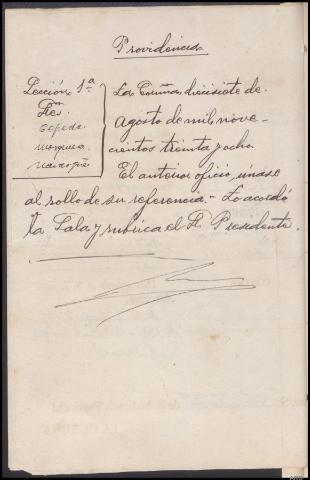 Providencia
Sección 1ª
Sres.
Cepeda
Marquina
La Coruña diecisiete de
Agosto de mil nove-
cientos treinta y ocho.
El anterior oficio, únase
al rollo de su referencia.- Lo acordó
la Sala y rubrica el Sr. Presidente.